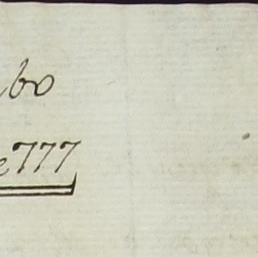 bo
e 777